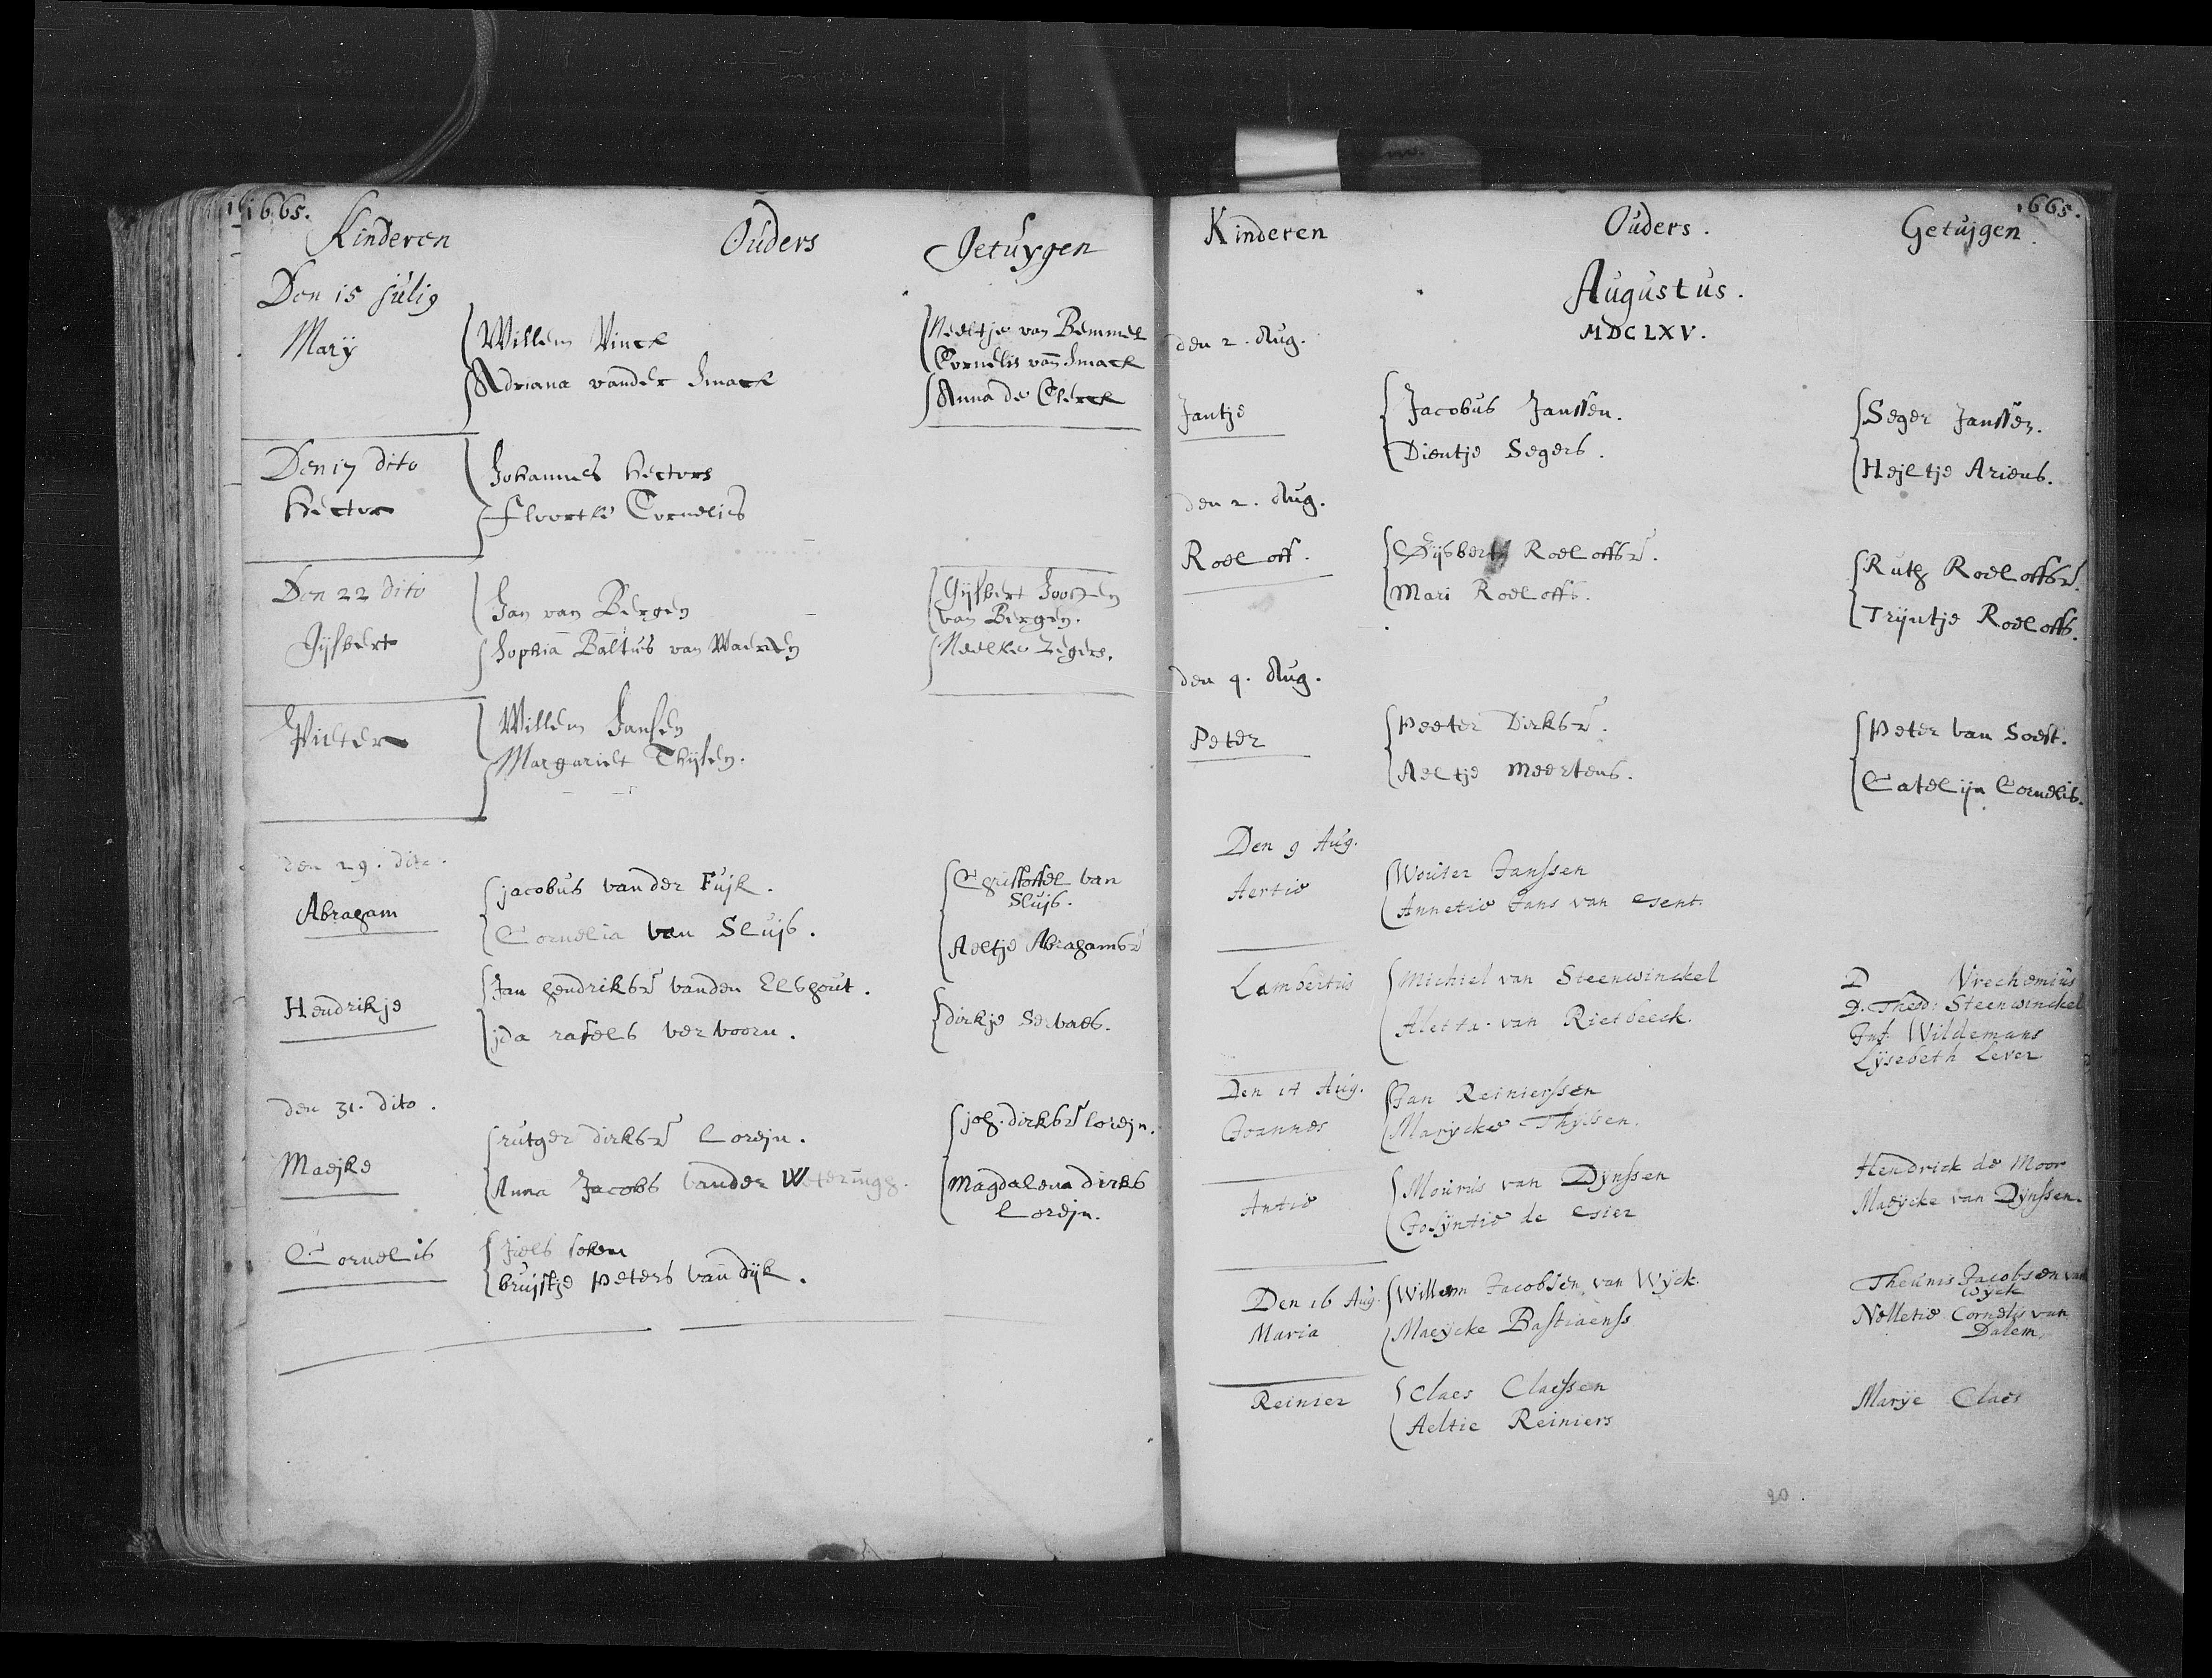 1665.
Kinderen Ouders Getuygen
Den 15 julij
Marÿ
Willem Vinck
Adriana vander Smack
Neeltje van Bemmel
Cornelis van Smack
Anna de Clerck
Den 17 dito
Hector
Johannes Hectors
Floortke Cornelis
Den 22 dito
Gijsbert
Jan van Bergen
Sophia Baltus van
Gijsbert Joosten
van Bergen.
Neelke Zegers.
Pieter
Willem Jansen
Margariet Thijsen.
den 29. dito.
Abraham
jacobus vander Fuijk.
Cornelia van Sluijs.
Christoffel van
Sluijs.
Aeltje Abrahams
Hendrikje
Jan hendriks vanden Elshout.
jda rafels vervoorn.
dirkje Servaes.
den 31. dito.
Maejke
rutger dirks Loreyn.
Anna Jacobs vander Weteringh.
joh. dirks loreyn.
Magdalena dirks
Loreyn.
Cornelis
bruijstje Peters van dijk.
1665.
Kinderen Ouders. Getuijgen.
Augustus.
MDCLXV.
den 2. Aug.
Jantje
Jacobus Janssen.
Dientje Segers.
Seger Janssen.
Heijltje Ariens.
den 2. Aug.
Roeloff.
Gijsbert Roeloffs.
Mari Roeloffs.
Ruth Roeloffs.
Trijntje Roeloffs.
den 9. Aug.
Peter
Peeter Dirks.
Aeltje Meertens.
Peter van Soest.
Catelijn Cornelis.
Den 9 Aug.
Aertie
Wouter Janssen
Annetie Jans van Esent.
Lambertus
Michiel van Steenwinckel
Aletta van Rietbeeck.
D Vrechemius
D. Theod: Steenwinckel
Juf. Wildemans
Lÿsebeth Lever
Den 14 Aug.
Joannes
Jan Reinierssen
Marÿcke Thÿssen.
Antie
Mourus van Dÿnssen
Josÿntie de Esier
Hendrick de Moor
Maeÿcke van Dÿnssen.
Den 16 Aug.
Maria
Willem Jacobsen van Wÿck.
Maeÿcke Bastiaenss
Theunis Jacobsen van
Wÿck
Nelletie Cornelis van
Dalem.
Reinier
Claes Claessen
Aeltie Reiniers
Marÿe Claes
20